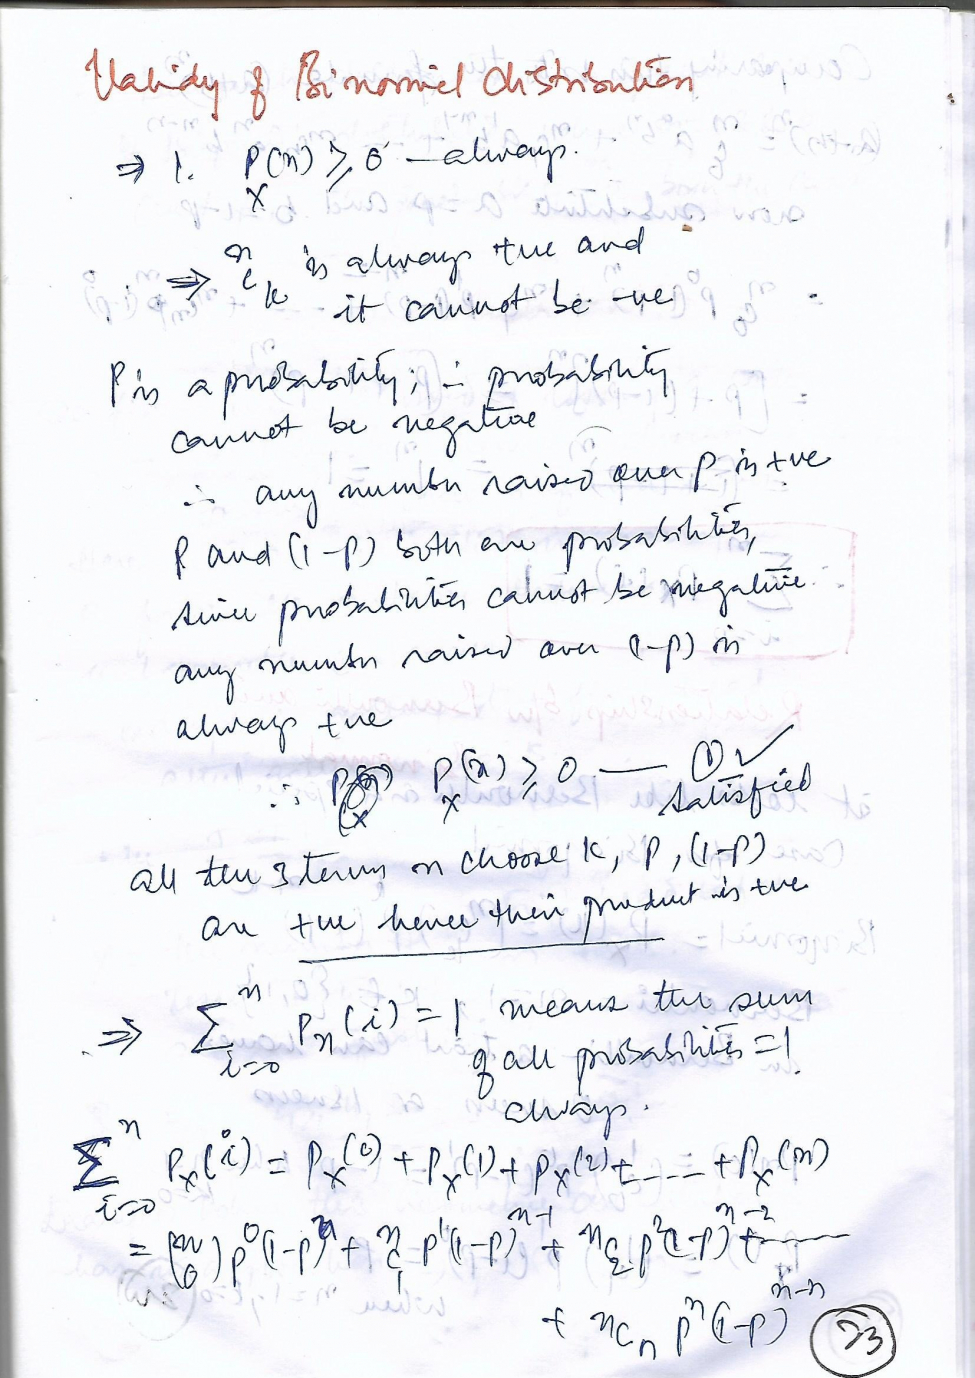 Validy of Binomial distribution
⇒ 1. P_X(n) ≥ 0 — always.
⇒ ⁿC_k is always +ve and
it cannot be -ve
P is a probability; ∴ probability
cannot be negative
∴ any number raised over P is +ve
P and (1-P) both are probabilities,
since probabilities cannot be negative
any number raised over (1-P) is
always +ve
∴ P_X(x) ≥ 0 — ① ✓
satisfied
all the 3 terms n choose k, P, (1-P)
are +ve hence their product is +ve
⇒ ∑_{i=0}^{n} P_n(i) = 1 means the sum
of all probabilities = 1
always.
∑_{i=0}^{n} P_X(i) = P_X(0) + P_X(1) + P_X(2) + .... + P_X(n)
= (n 0) p^0 (1-p)^n + ⁿC_1 p^1 (1-p)^{n-1} + ⁿC_2 p^2 (1-p)^{n-2} + ------
+ ⁿC_n p^n (1-p)^{n-n}
23